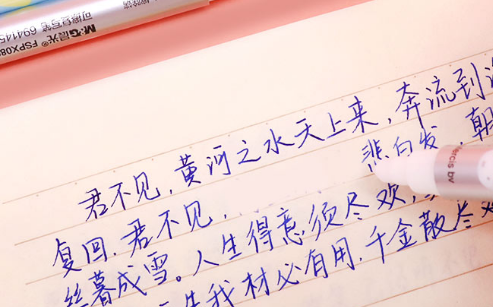 M&G晨光®
FSPX08
694145
君不见,黄河之水天上来,奔流到
悲白发,朝
复回.君不见,......
丝暮成雪。人生得意须尽欢,
我材必有用.千金散尽